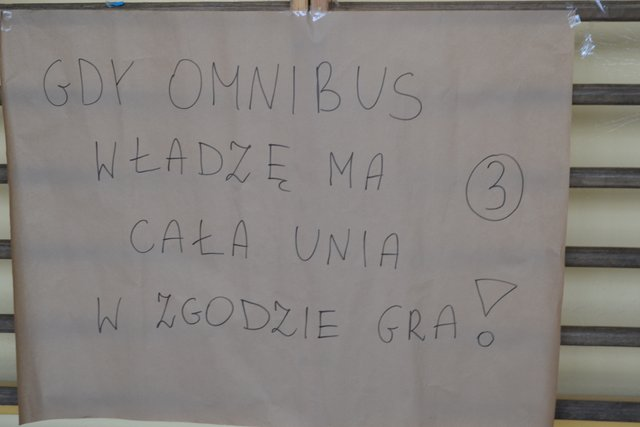 GDY OMNIBUS
WŁADZĘ MA
3
CAŁA UNIA
W ZGODZIE GRA!